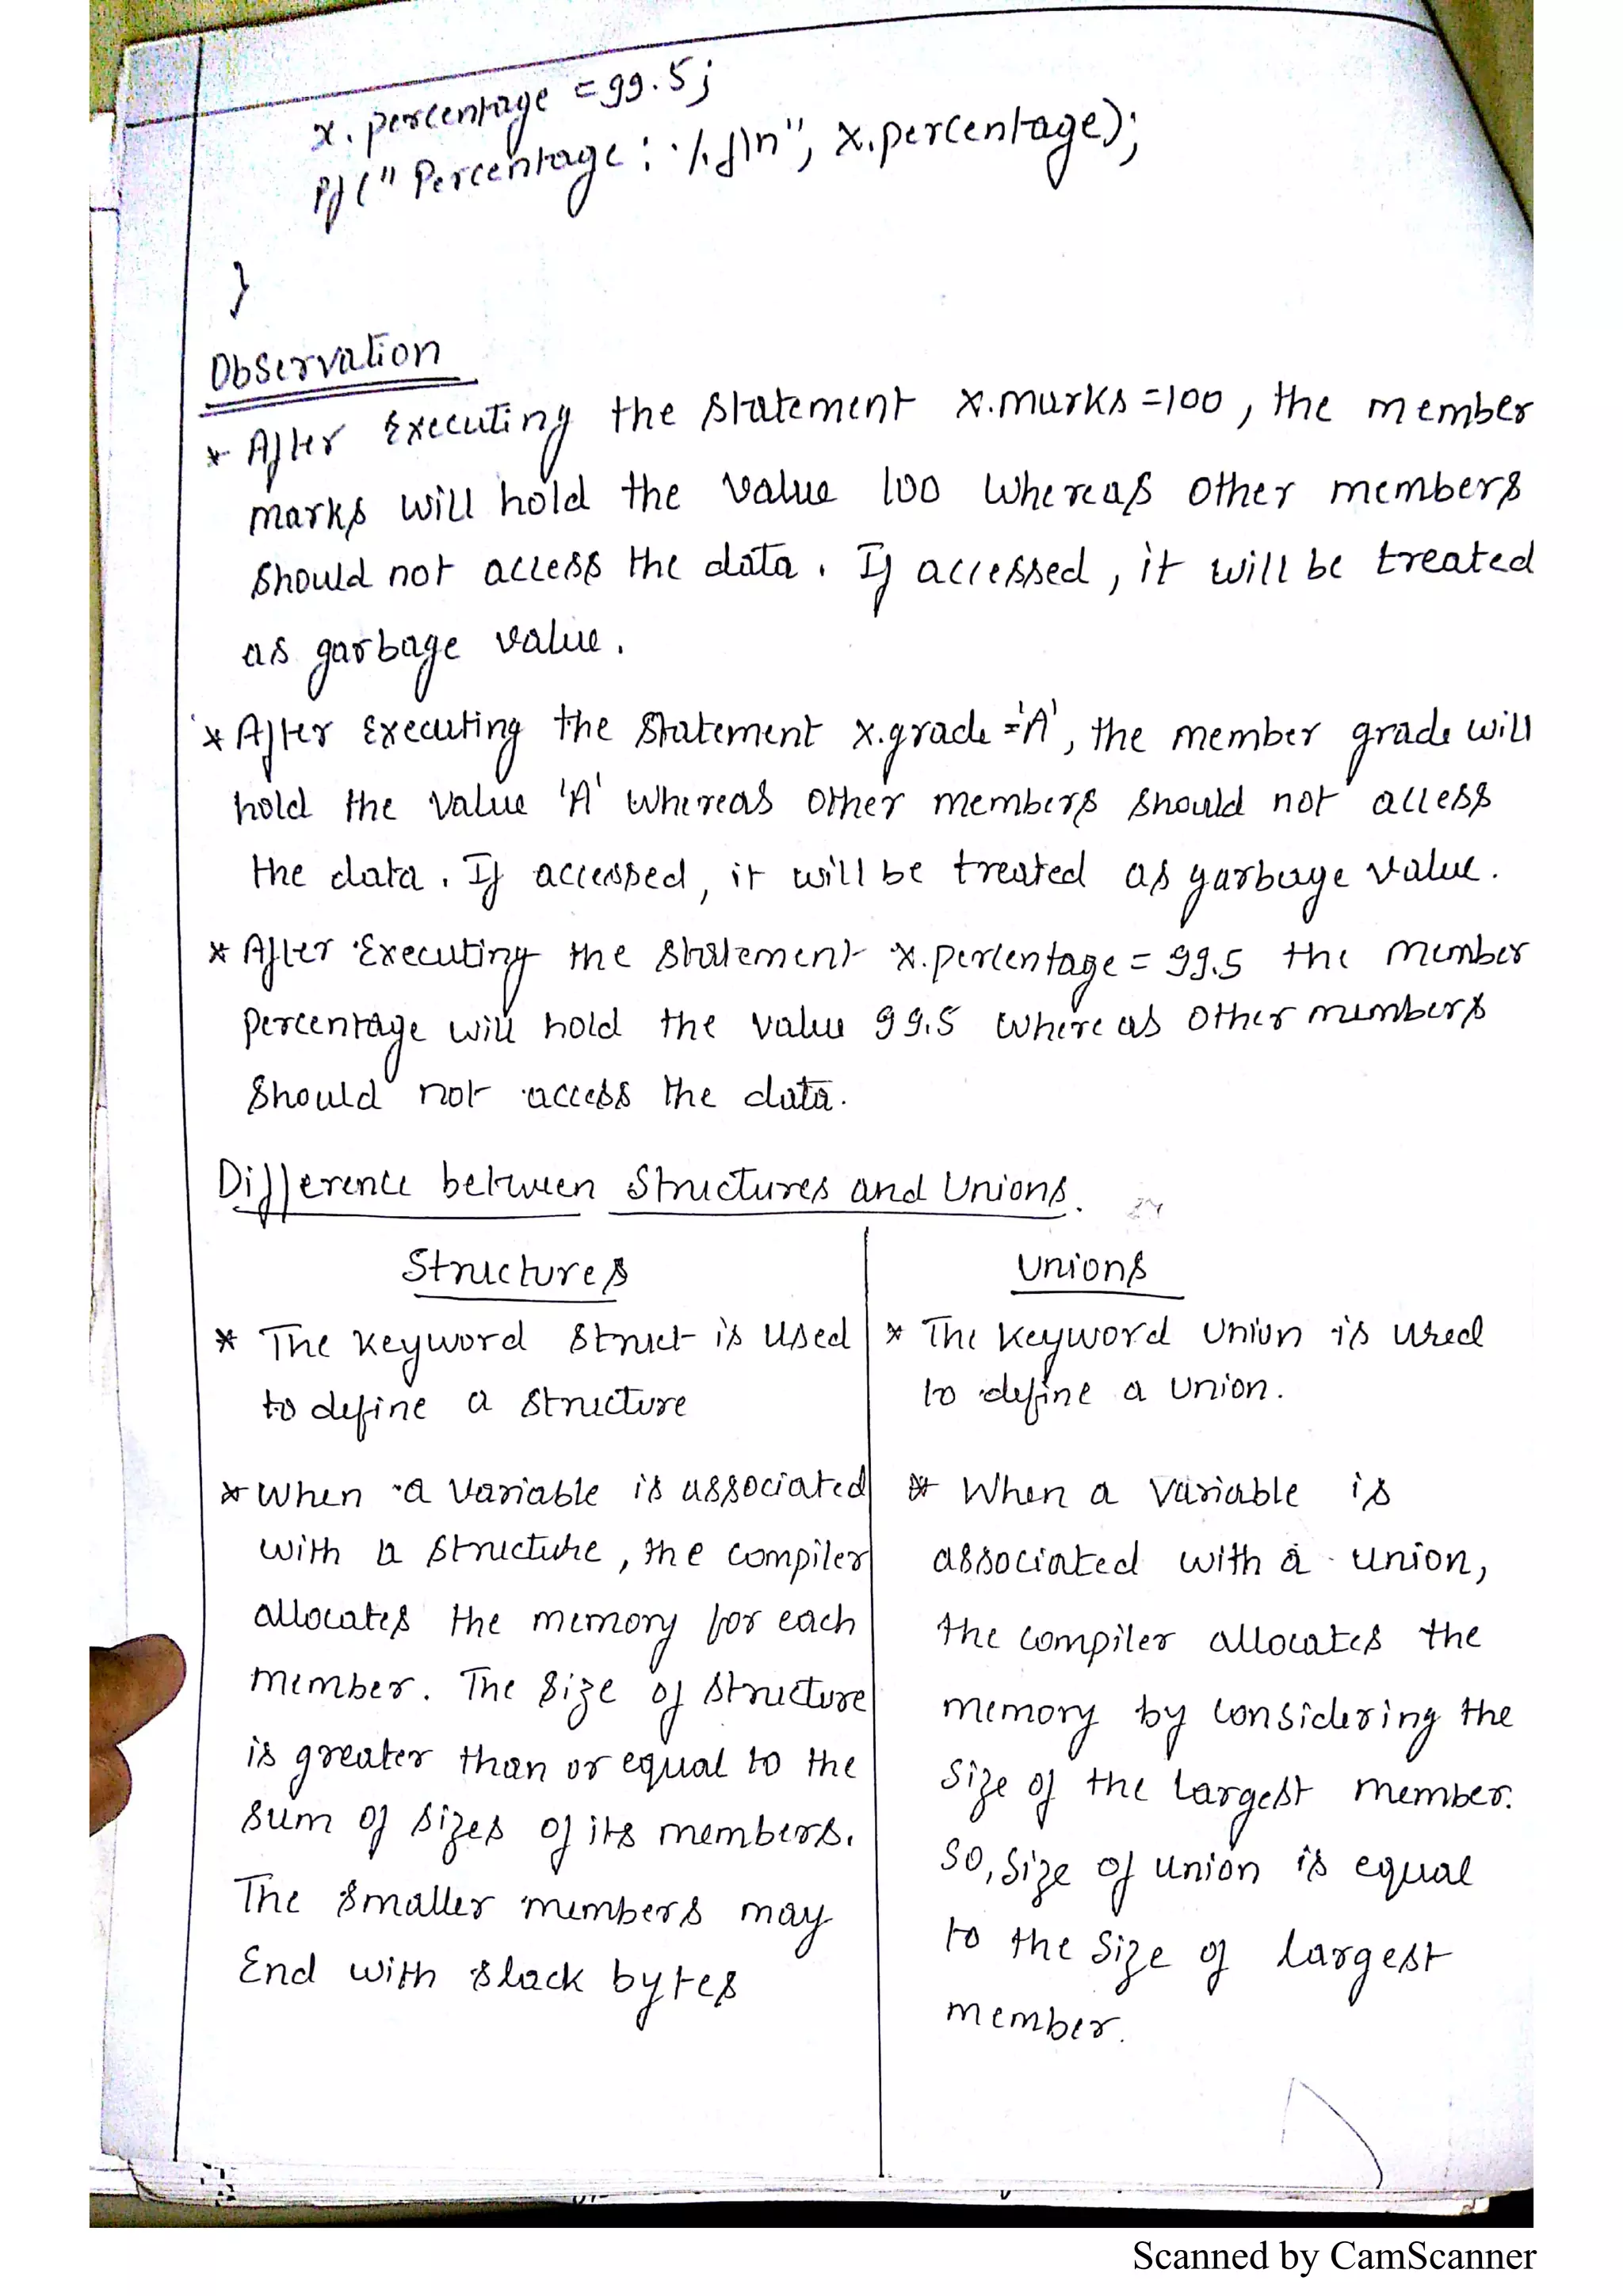 x.percentage = 99.5;
Pf("Percentage: %f\n", x.percentage);
}
Observation
* After Executing the statement x.marks = 100, the member
marks will hold the value 100 whereas other members
should not access the data. If accessed, it will be treated
as garbage value.
* After Executing the statement x.grade = 'A', the member grade will
hold the value 'A' whereas other members should not access
the data. If accessed, it will be treated as garbage value.
* After Executing the statement x.percentage = 99.5 the member
percentage will hold the value 99.5 where as other members
should not access the data.
Difference between Structures and Unions.
Structures
* The keyword struct is used
to define a structure
* When a variable is associated
with a structure, the compiler
allocates the memory for each
member. The size of structure
is greater than or equal to the
sum of sizes of its members.
The smaller members may
End with slack bytes
Unions
* The keyword union is used
to define a union.
* When a variable is
associated with a union,
the compiler allocates the
memory by considering the
size of the largest member.
So, size of union is equal
to the size of largest
member.
Scanned by CamScanner